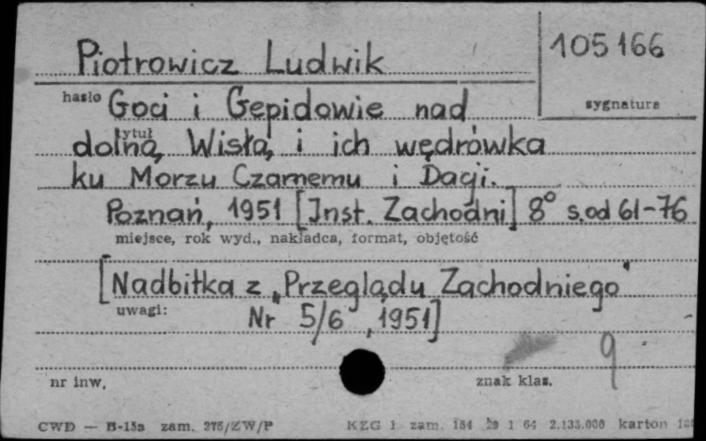 Piotrowicz Ludwik
105166
hasło
sygnatura
Goci i Gepidowie nad
tytuł
dolną Wisłą i ich wędrówka
ku Morzu Czarnemu i Dacji.
Poznań, 1951 [Inst. Zachodni] 8° s.od 61-76
miejsce, rok wyd., nakładca, format, objętość
[Nadbitka z „Przeglądu Zachodniego"
uwagi:
Nr 5/6, 1951]
9
nr inw.
znak klas.
CWD — B-15a zam. 276/ZW/P
KZG 1 zam. 184 29 1 64 2.133.000 karton